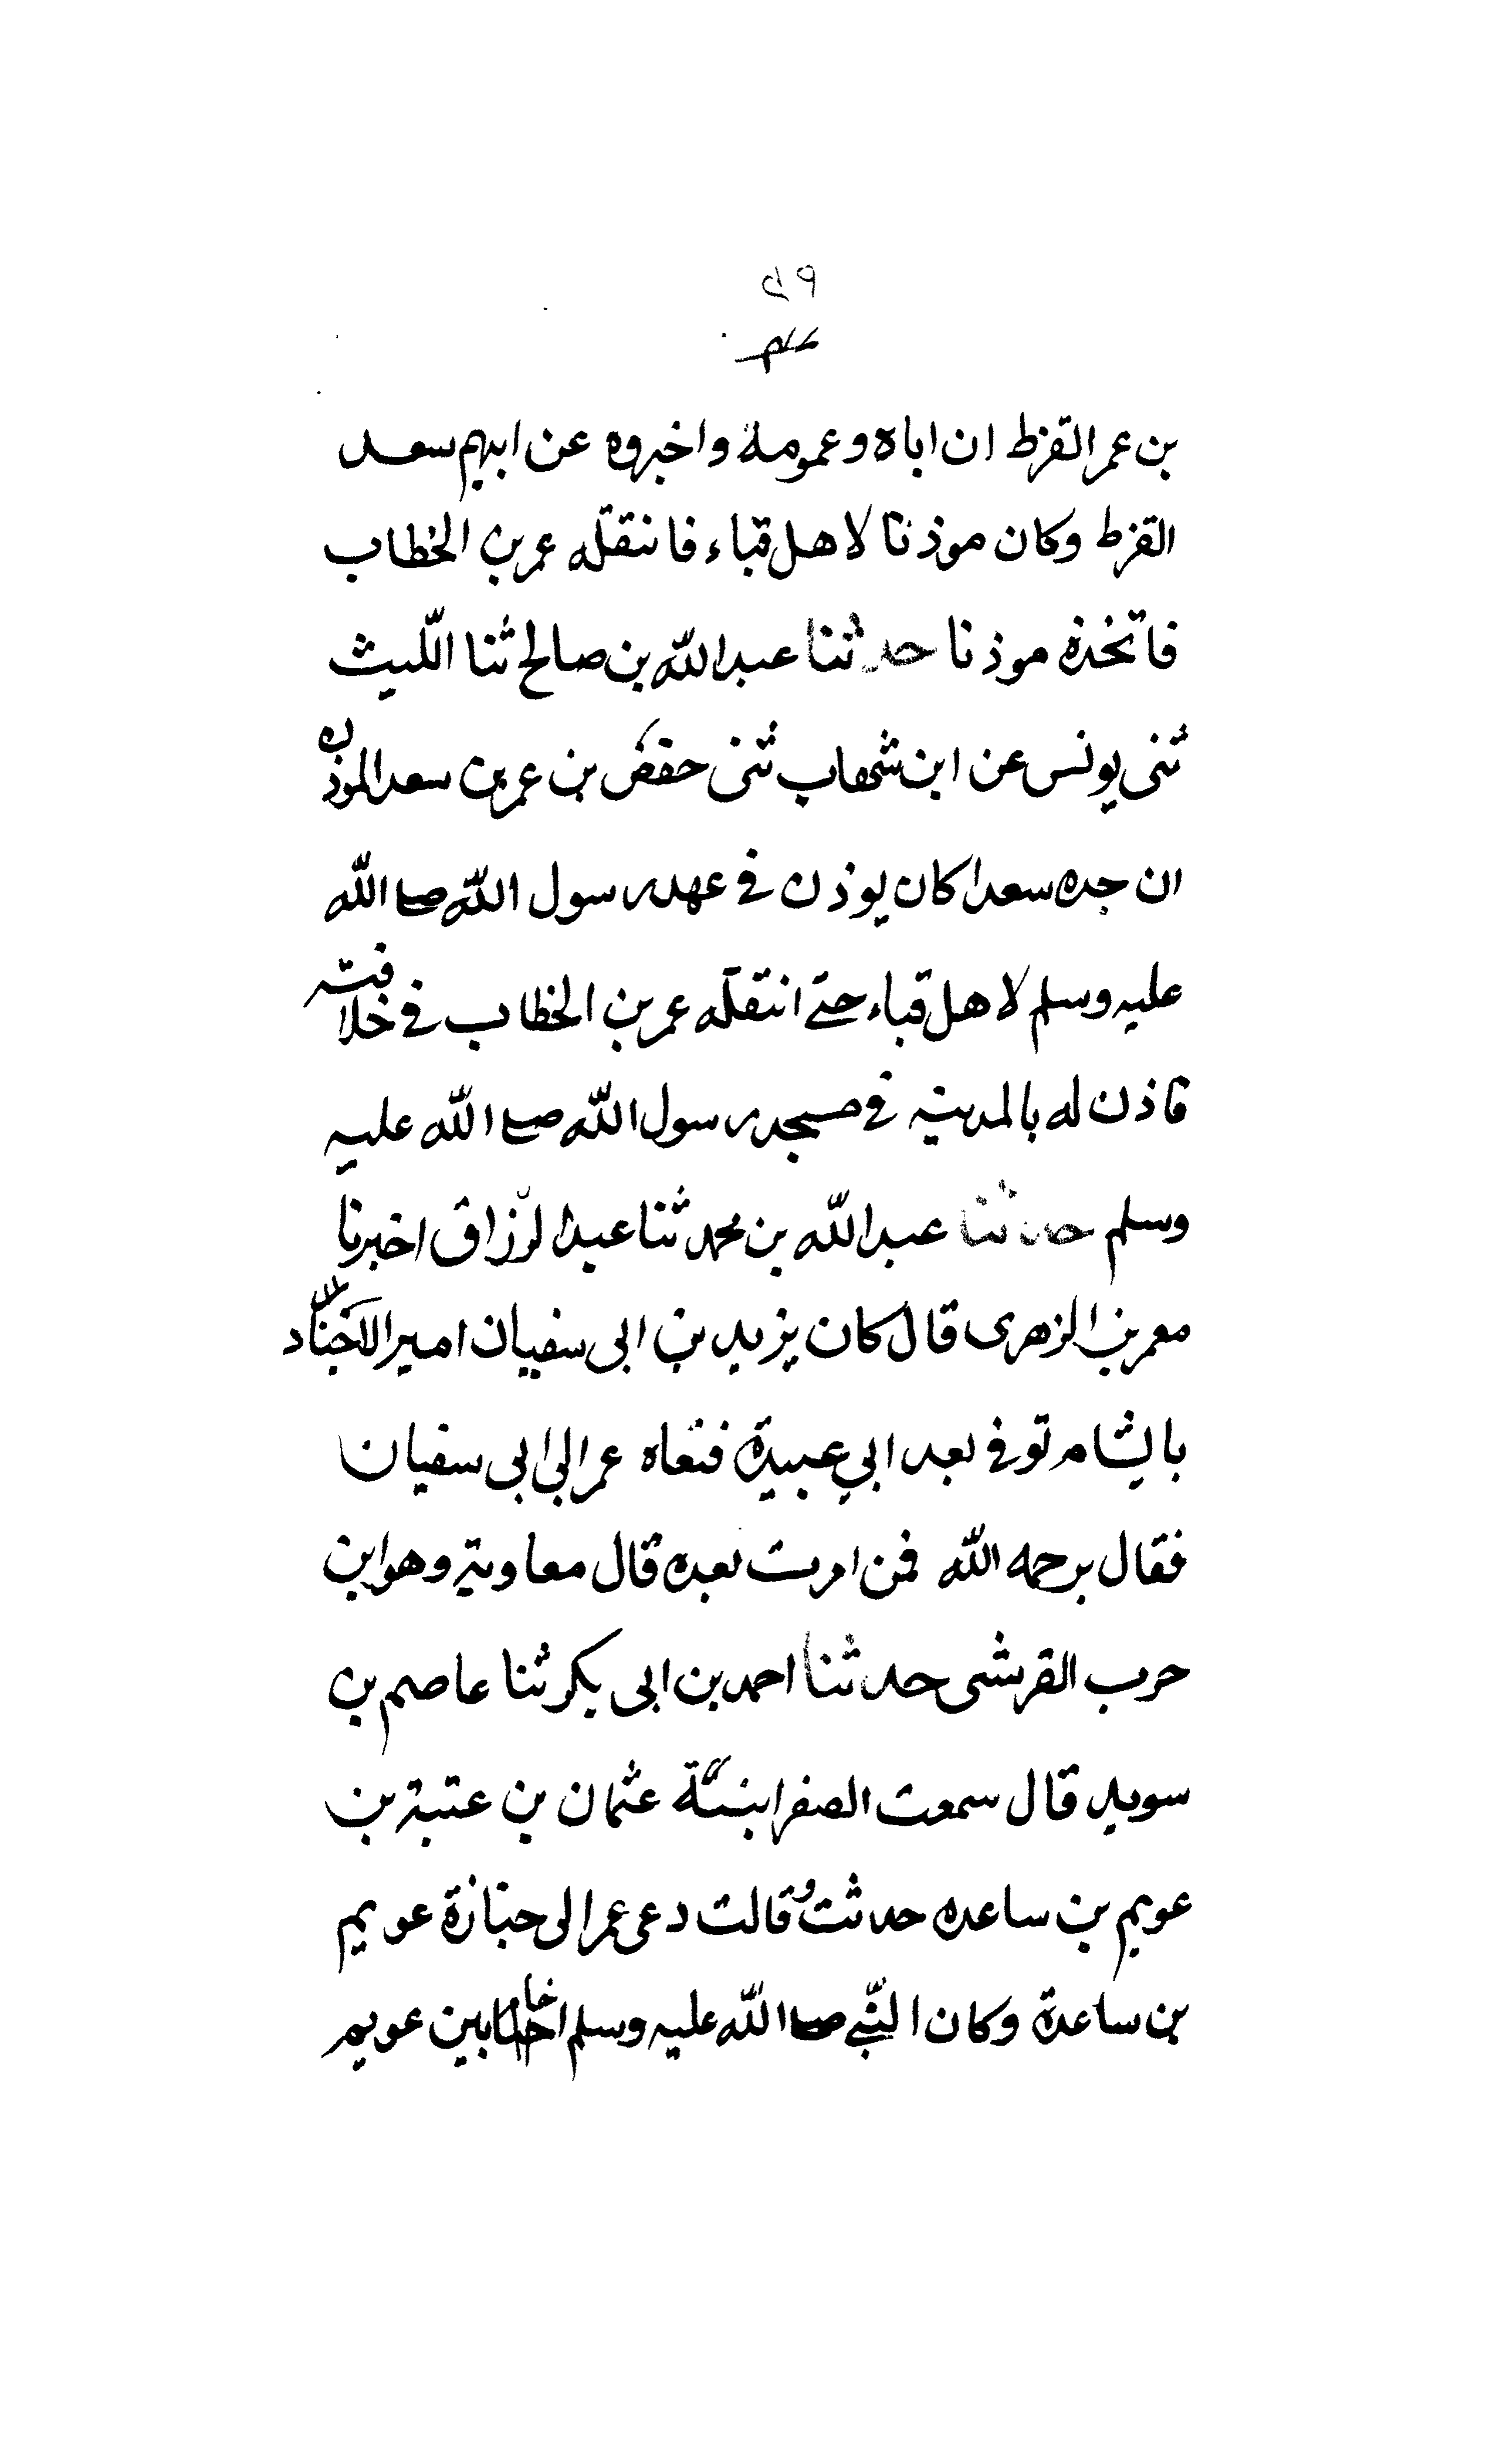 ۲۹
بن عمر القرظ ان اباه وعمومة واخبروه عن ابيهم سعد
القرظ وكان موذنا لاهل قباء فانتقله عمر بن الخطاب
فاتخذه موذنا حدثنا عبد الله بن صالح ثنا الليث
ثنى يونس عن ابن شهاب ثنى حفص بن عمر بن سعد الموذن
ان جده سعدا كان يوذن في عهد رسول الله صلى الله
عليه وسلم لاهل قباء حتى انتقله عمر بن الخطاب في خلافته
فاذن له بالمدينة في مسجد رسول الله صلى الله عليه
وسلم حدثنا عبد الله بن محمد ثنا عبد الرزاق اخبرنا
معمر بن الزهرى قال كان يزيد بن ابى سفيان امير الاجناد
بالشام توفي بعد ابي عبيدة فنعاه عمر الى ابى سفيان
فقال يرحمه الله فمن امرت بعده قال معاوية وهو ابن
حرب القرشى حدثنا احمد بن ابى بكر ثنا عاصم بن
سويد قال سمعت الصفرا بنت عثمان بن عتبة بن
عويم بن ساعده حدثت وقالت دعى عمر الى جنازة عويم
بن ساعدة وكان النبي صلى الله عليه وسلم اخا بين عويم